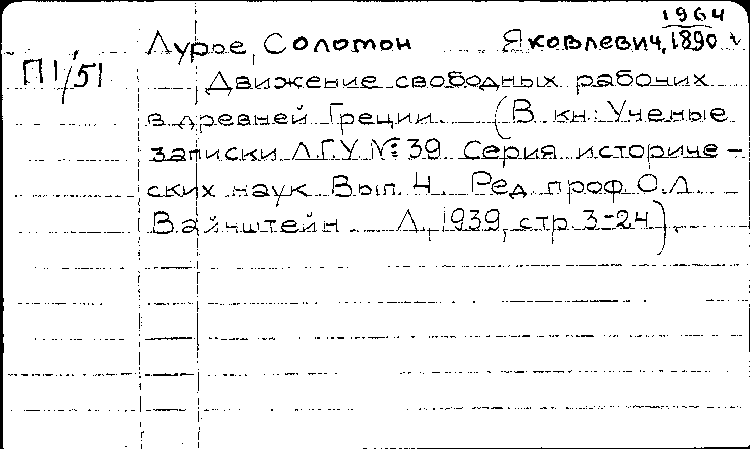 1964
Лурье, Соломон Яковлевич, 1890 г.
П1/51
Движение свободных рабочих
в древней Греции. (В кн.: Ученые
записки Л.Г.У. № 39. Серия историче-
ских наук. Вып. 4. Ред. проф. О.Л.
Вайнштейн. Л., 1939, стр. 3-24).